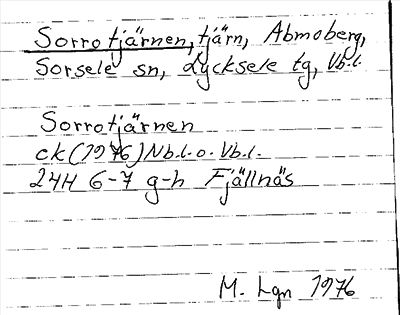 Sorrotjärnen, tjärn, Abmoberg,
Sorsele sn, Lycksele tg, Vb.l.
Sorrotjärnen
ck (1976) Nb.l. o. Vb.l.
24H 6-7 g-h Fjällnäs
M. Lgn 1976